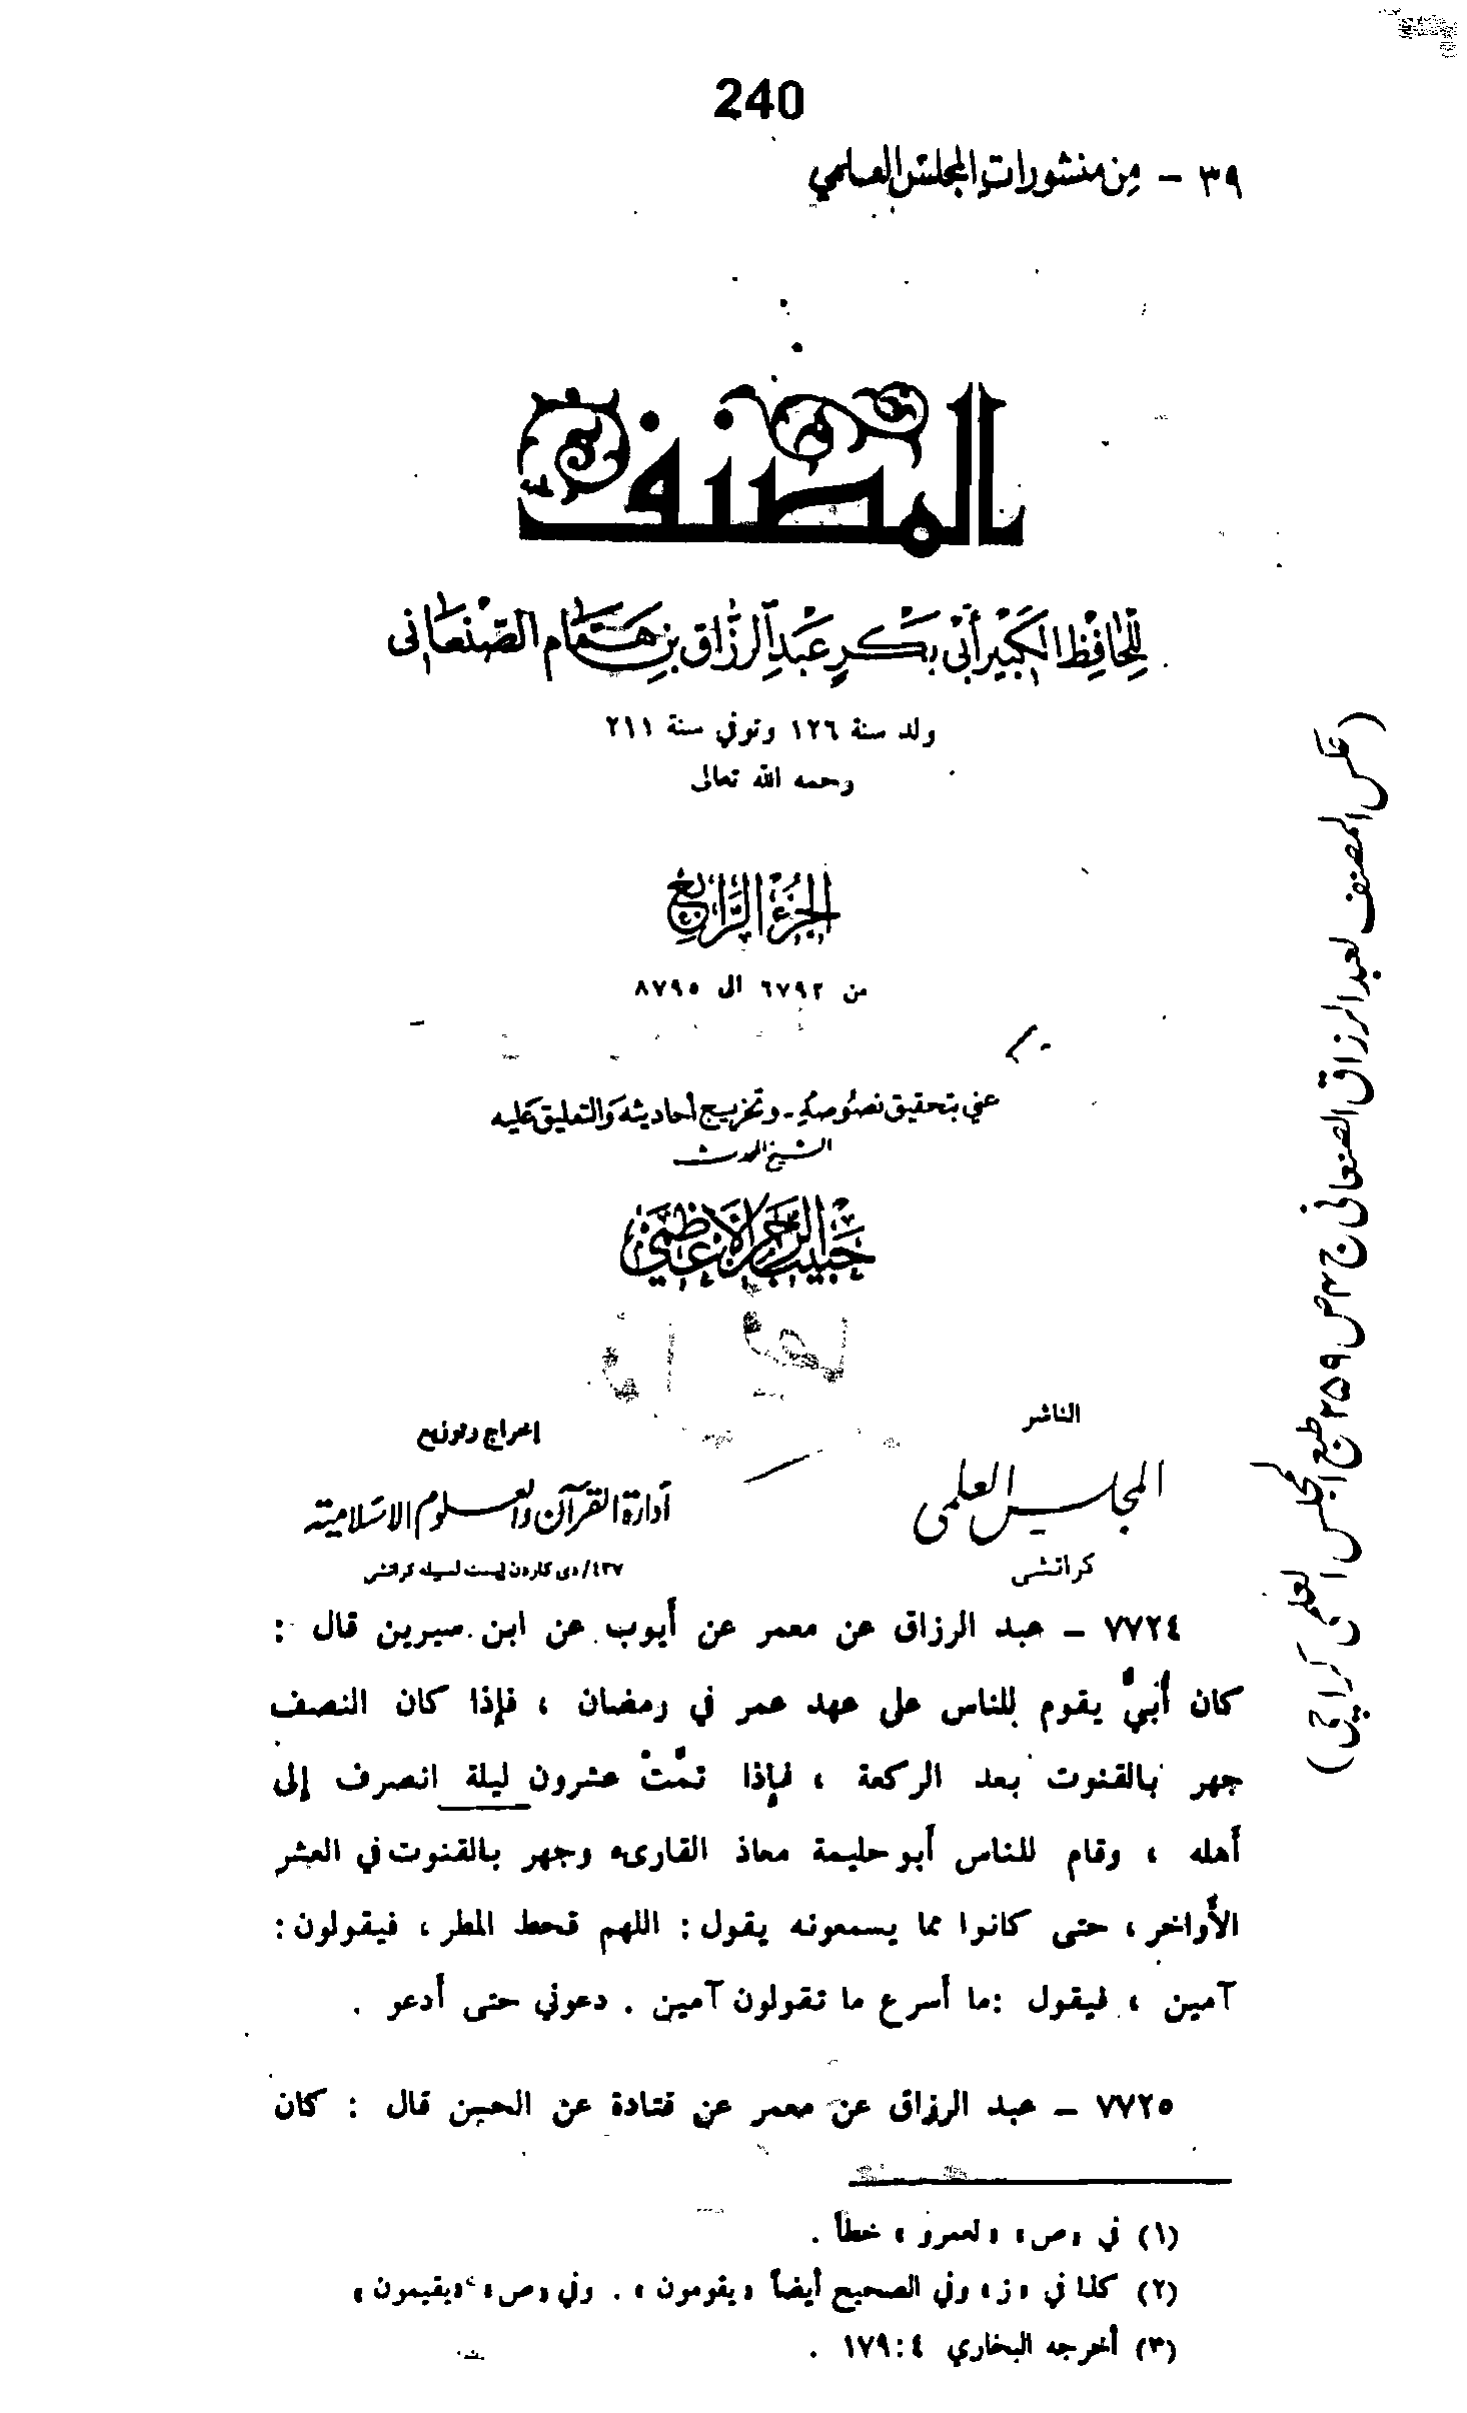 240
٣٩ - من منشورات المجلس العلمي
المصنف
للحافظ الكبير أبي بكر عبد الرزاق بن همام الصنعاني
ولد سنة ١٢٦ وتوفي سنة ٢١١
رحمه الله تعالى
الجزء الرابع
من ٦٧٩٢ الى ٨٧٩٥
عني بتحقيق نصوصه - وتخريج أحاديثه والتعليق عليه
الشيخ المحدث
حبيب الرحمن الأعظمي
الناشر
المجلس العلمي
كراتشي
إخراج وتوزيع
ادارة القرآن والعلوم الاسلامية
٤٣٧/دى كاردن ايست لسبيله كراتشي
(عکس المصنف لعبد الرزاق الصنعانی ج ۴ ص ۲۵۹ طبع المجلس العلمی کراچی)
٧٧٢٤ - عبد الرزاق عن معمر عن أيوب عن ابن سيرين قال :
كان أُبيٌّ يقوم للناس على عهد عمر في رمضان ، فإذا كان النصف
جهر بالقنوت بعد الركعة ، فإذا تمّتْ عشرون ليلة انصرف إلى
أهله ، وقام للناس أبو حليمة معاذ القارىء وجهر بالقنوت في العشر
الأواخر ، حتى كانوا مما يسمعونه يقول : اللهم قحط المطر ، فيقولون :
آمين ، فيقول : ما أسرع ما تقولون آمين . دعوني حتى أدعو .
٧٧٢٥ - عبد الرزاق عن معمر عن قتادة عن الحسن قال : كان
(١) في «ص» «لعمرو» خطأ .
(٢) كذا في «ز» وفي الصحيح أيضاً «يقومون» . وفي «ص» «يقيمون»
(٣) أخرجه البخاري ٤ : ١٧٩ .